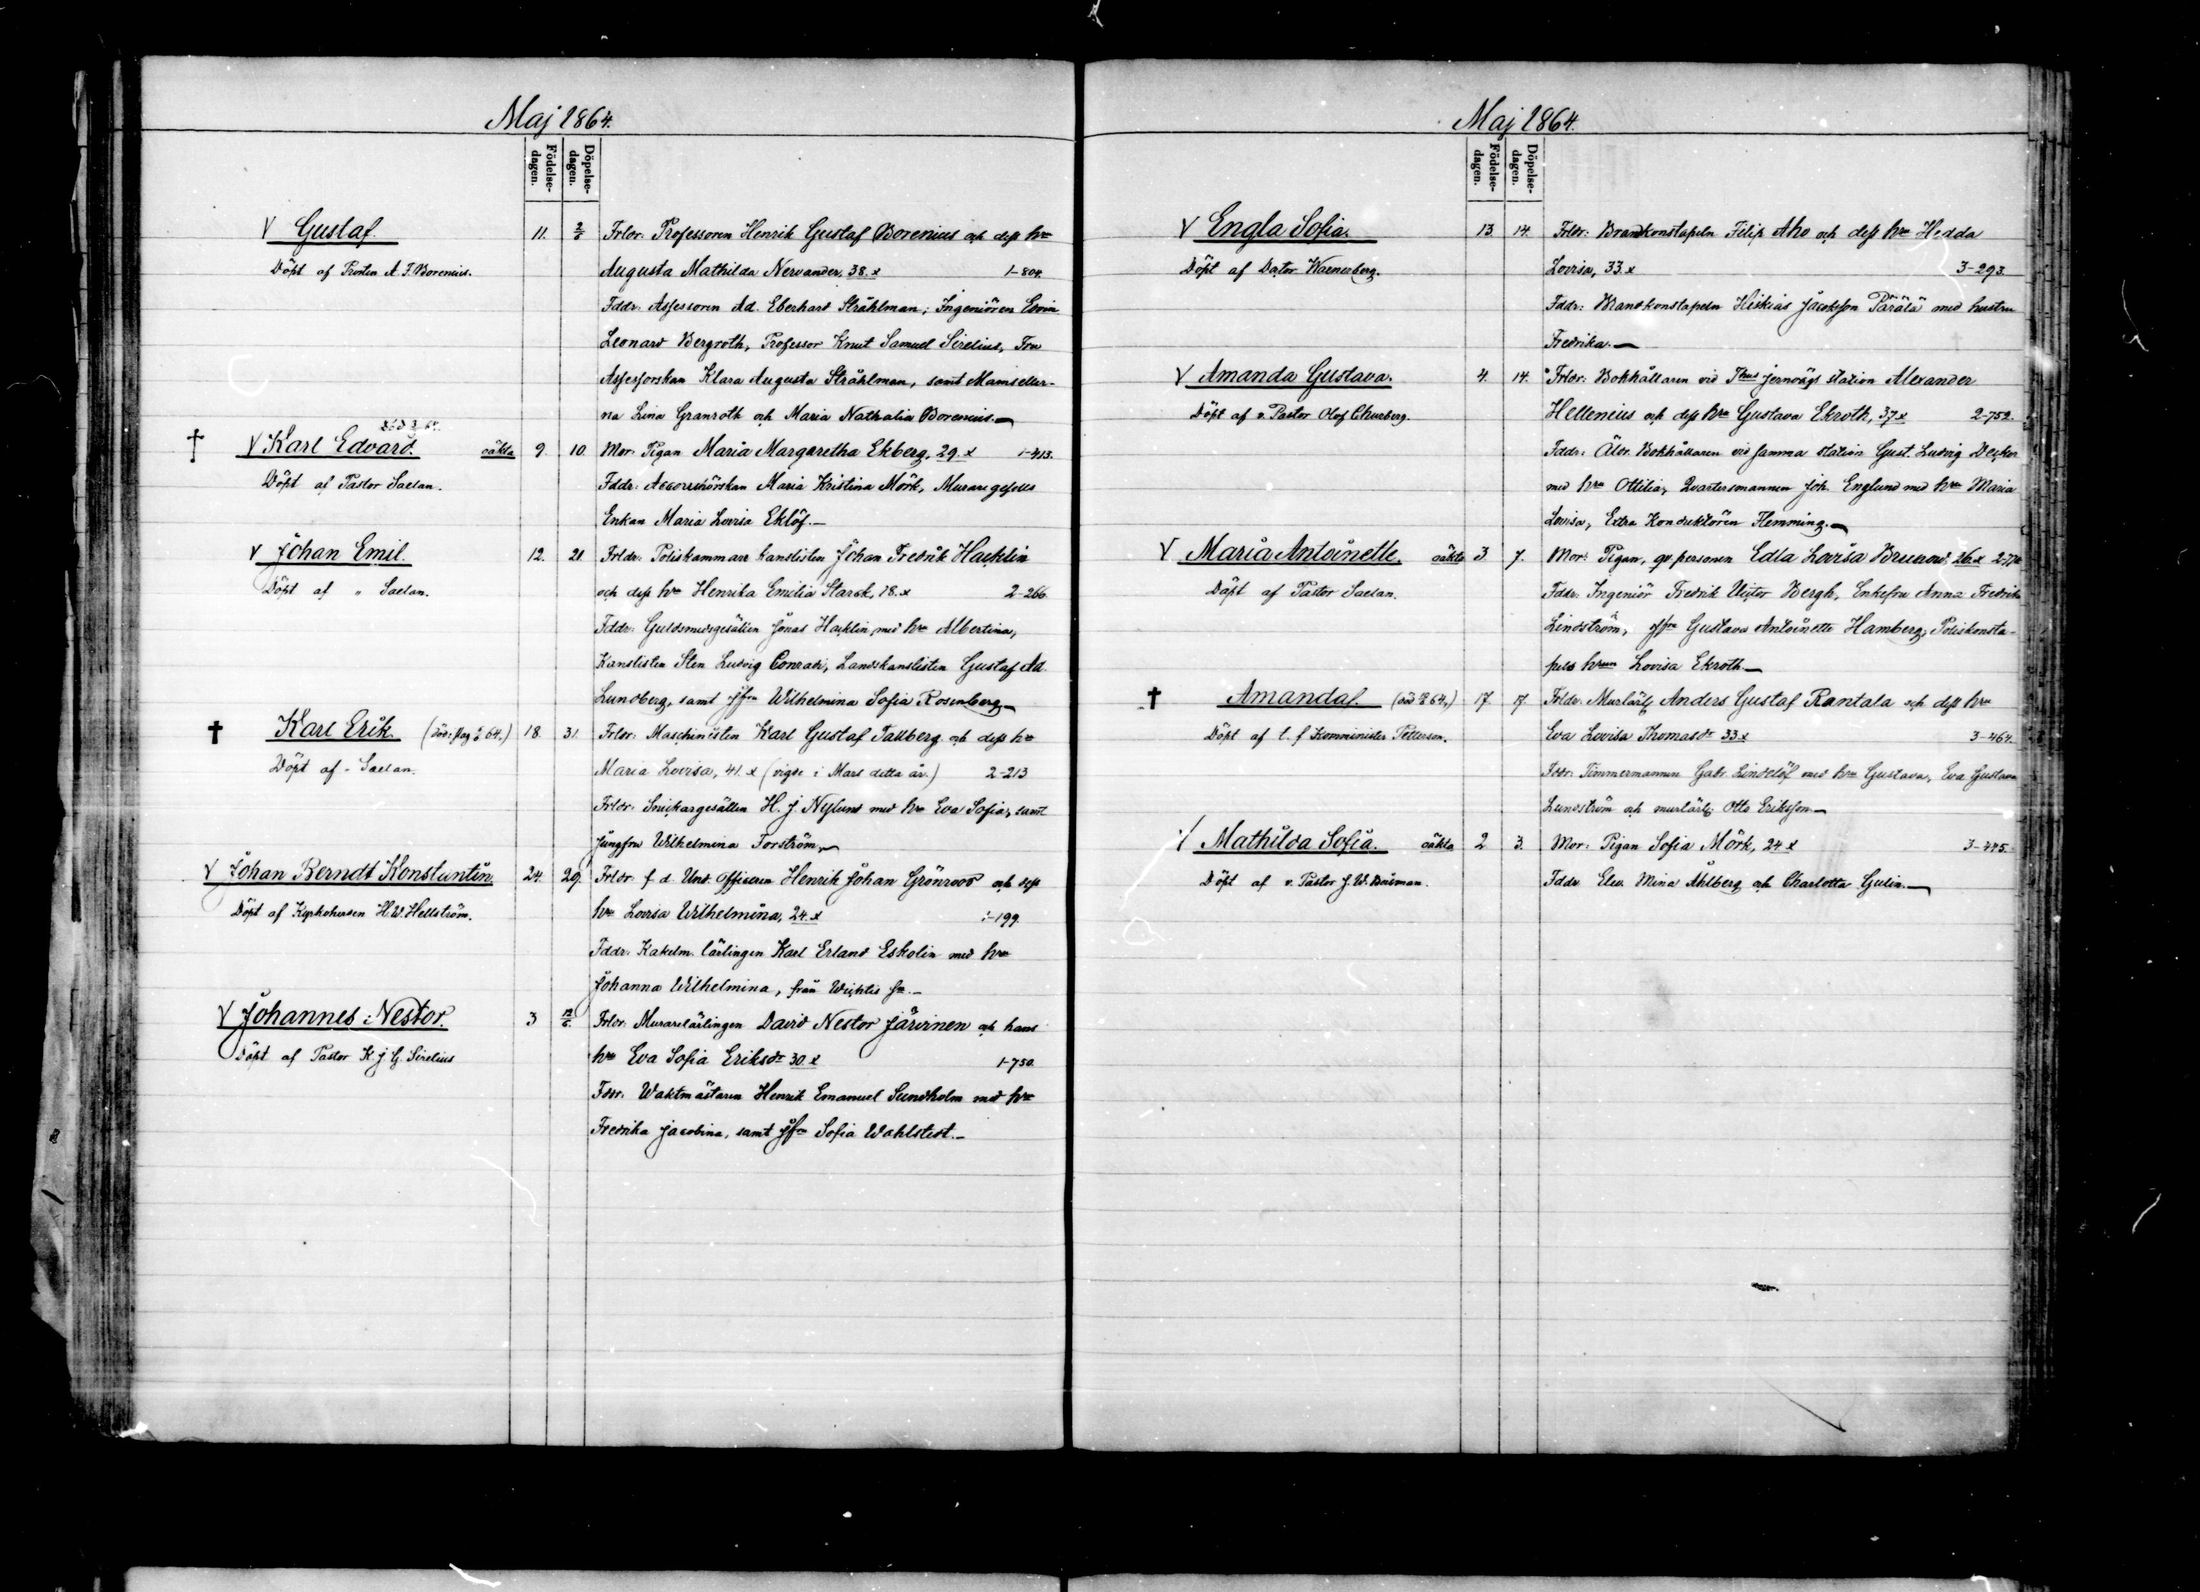 Maj 1864.
Födelse-dagen.
Döpelse-dagen.
V Gustaf. 11. 2/6 Frldr. Professoren Henrik Gustaf Borenius och dess hru
Döpt af Prosten A. F. Borenius. Augusta Mathilda Nervander, 38. x 1-804.
Fddr: Assessoren Ad. Eberhard Stråhlman, Ingeniören Edvin
Leonard Bergroth, Professor Knut Samuel Sirelius, Fru
Assessorskan Klara Augusta Stråhlman, samt Mamseller-
na Lina Granroth och Maria Nathalia Borenius.
† V Karl Edvard. oäkta 9. 10. Mor: Pigan Maria Margaretha Ekberg, 29. x 1-413.
Döpt af Pastor Saelan. Fddr: Accoucheurskan Maria Kristina Mörk, Murare gesälls
Enkan Maria Lovisa Eklöf.
V Johan Emil. 12. 21 Frldr. Poliskammare kanslisten Johan Fredrik Hacklin
Döpt af " Saelan. och dess hru Henrika Emilia Starck, 18. x 2-266.
Fddr: Guldsmedsgesällen Jonas Hacklin med hru Albertina,
Kanslisten Sten Ludvig Conradi, Landskanslisten Gustaf Ad.
Lundberg, samt jfru Wilhelmina Sofia Rosenberg
† Karl Erik. 18. 31. Frldr: Maschinisten Karl Gustaf Tallberg och dess hru
Döpt af - Saelan. Maria Lovisa, 41. x (vigde i Mars detta år.) 2-213
Frldr: Snickargesällen H. J. Nylund med hru Eva Sofia, samt
Jungfru Wilhelmina Forström,
V Johan Berndt Konstantin 24. 29. Frldr. f. d. Und. Officeren Henrik Johan Grönroos och dess
Döpt af Kyrkoherden H. W. Hellström. hru Lovisa Wilhelmina, 24. x 1-199.
Fddr: Kakelm. lärlingen Karl Erland Eskolin med hru
Johanna Wilhelmina, från Wichtis sn.
V Johannes Nestor. 3 12/6. Frldr: Murarelärlingen David Nestor Järvinen och hans
Döpt af Pastor K J G. Sirelius hru Eva Sofia Eriksdr 30 x 1-750.
Fddr: Waktmästaren Henrik Emanuel Sundholm med hru
Fredrika Jacobina, samt jfru Sofia Wahlstedt.
Maj 1864.
Födelse-dagen.
Döpelse-dagen.
V Engla Sofia. 13. 14. Frldr: Brandkonstapeln Filip Aho och dess hru Hedda
Döpt af Doctor Waenerberg. Lovisa, 33. x 3-293.
Fddr: Brandkonstapeln Hiskias Jacobsson Pärälä med hustru
Fredrika.
V Amanda Gustava. 4. 14. Frldr: Bokhållaren vid Thus jernvägs station Alexander
Döpt af v. Pastor Olof Churberg. Hellenius och dess hru Gustava Ekroth, 37. x 2-752.
Fddr: Äldr. Bokhållaren vid samma station Gust. Ludvig Decker
med hru Ottilia, Qvartersmannen Joh. Englund med hru Maria
Lovisa, Extra Konduktören Flemming.
V Maria Antoinette. oäkta 3 7. Mor: Pigan, qv personen Edla Lovisa Brunow, 26. x
Döpt af Pastor Saelan. Fddr: Ingeniör Fredrik Victor Bergh, Enkefru Anna Fredrika
Lindström, jfru Gustava Antoinette Hamberg, Poliskonsta-
pels hrun Lovisa Ekroth
† Amanda. 17. 17. Frldr: Murlärlg Anders Gustaf Rantala och dess hru
Döpt af t. f. Komminister Petterson. Eva Lovisa Thomasdr 33 x 3-464.
Fddr: Timmermannen Gabr. Lindelöf med hru Gustava, Eva Gustava
Lundström och murlärlg Otto Eriksson
Mathilda Sofia. oäkta 2 3. Mor: Pigan Sofia Mörk, 24 x 3-445.
Döpt af v. Pastor Fddr. Elev. Mina Åhlberg och Charlotta Gulin.